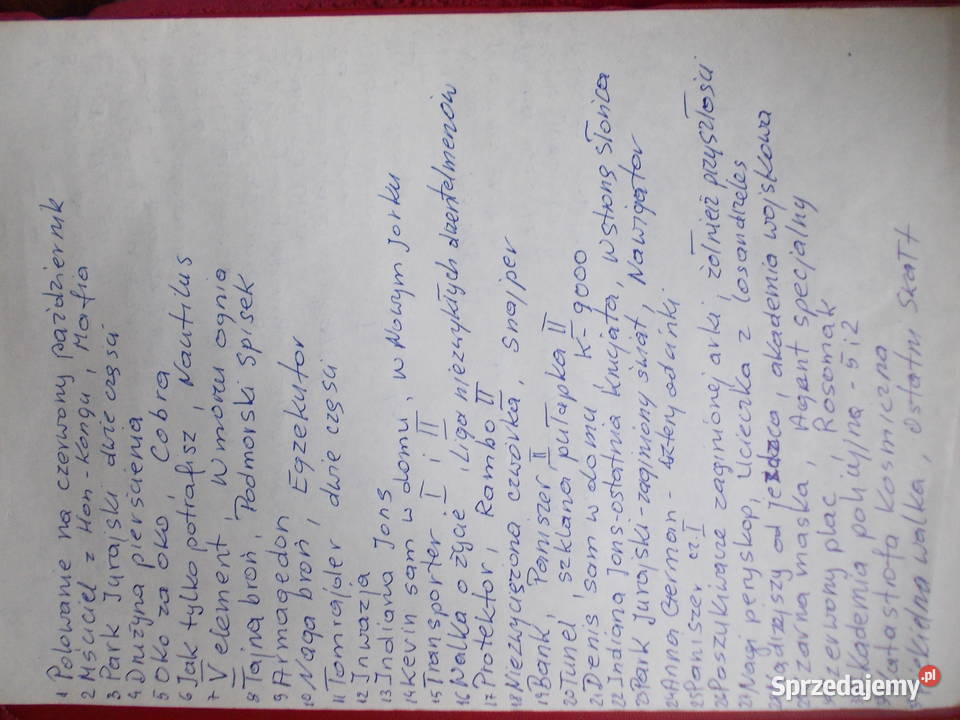 1 Polowanie na czerwony październik
2 Mściciel z Hon-Kongu, Mafia
3 Park Jurajski dwie części
4. Drużyna pierścienia
5 Oko za oko, Cobra
6 Jak tylko potrafisz, Nautilus
7 V element, W morzu ognia
8 Tajna broń, Podmorski spisek
9 Armagedon
10 Naga broń, Egzekutor
11 Tomrajder dwie części
12 Inwazja
13 Indiana Jons
14 Kevin sam w domu, w Nowym Jorku
15 Transporter I i II
16 Walka o życie, Liga niezwykłych dżentelmenów
17 Protektor, Rambo II
18 Niezwyciężona czwórka, Snajper
19 Bank, Paniszer II
20 Tunel, szklana pułapka II
21 Denis sam w domu K-9000
22 Indiana Jons-ostatnia krucjata, w stronę słońca
23 Park Jurajski-zaginiony świat, Nawigator
24 Anna German - cztery odcinki
25 Paniszer cz. I
26 Poszukiwacze zaginionej arki, żołnierz przyszłości
27 Nagi peryskop, Ucieczka z Losandzeles
Jedzca, akademia wojskowa
Czarna maska, Agent specjalny
Czerwony plac, Rosomak
Akademia policyjna - 5 i 2
Katastrofa kosmiczna
walka, Ostatni Skałt
Sprzedajemy.pl